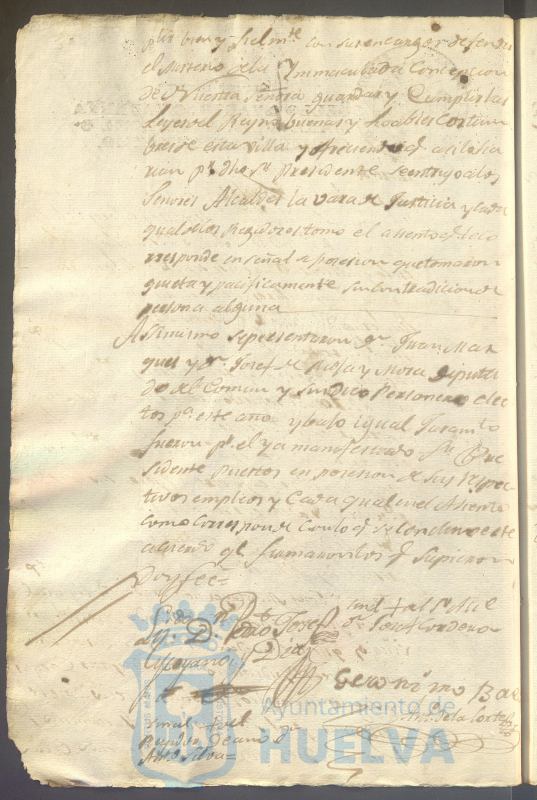 plir bien y fielmte. con sus encargos defender
el Misterio de la Ymmaculada Concepcion
de Nuestra Señora guardar y Cumplir las
Leyes del Reyno buenas y loables Costum
bres de esta villa y ofreciendo q. asi lo ha
rian pr. dho Sr. Presidente se entrego a los
Señores Alcaldes la vara de Justicia y cada
qual de los Rexidores tomo el asiento q. le co
rresponde en señal de posesion que tomaron
quieta y pacificamente sin contradicion de
persona alguna
Assimismo se presentaron Dn. Juan Mar
ques y Dn. Josef de Rioja y Mora Diputa
do del Comun y Sindico Personero elec
tos pa. este año y bajo igual Juramto.
fueron pr. el ya manifestado Sr. Pre
sidente puestos en posesion de sus respec
tivos empleos y Cada qual en el Asiento
como corresponde con lo q. se concluio este
acuerdo q. firmaron los q. supieron
Doy fee=
Ldo. Dn. Pedro Josef
señal + del Sr. Alcl.
Dn. Josef Cordero
Moyano y Diaz
Geronimo Ba
señal + del
Regidor Decano Dn.
Anto. Silva=
Anto. de la Corte
Ayuntamiento de
HUELVA